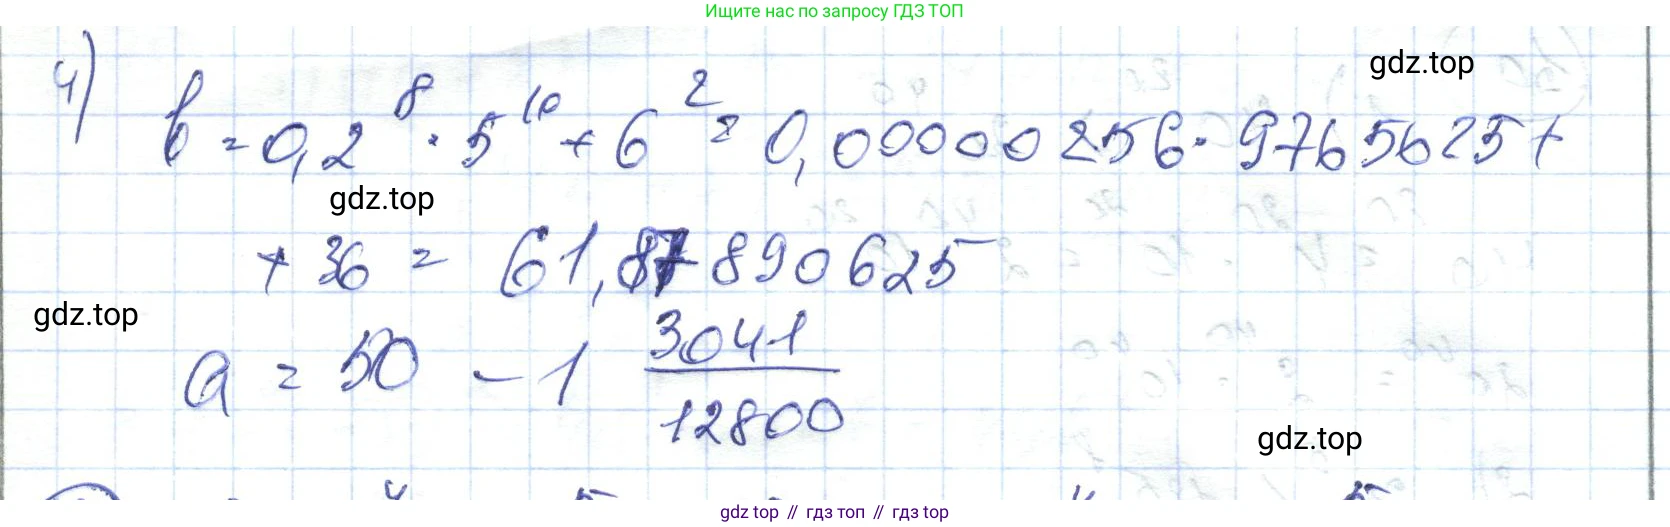 Ищите нас по запросу ГДЗ ТОП
gdz.top
4) b = 0,2^8 · 5^10 + 6^2 = 0,00000256 · 9765625 +
gdz.top
+ 36 = 61,87890625
gdz.top
a = 50 - 1 3041/12800
gdz.top
gdz.top // гдз топ // гдз top